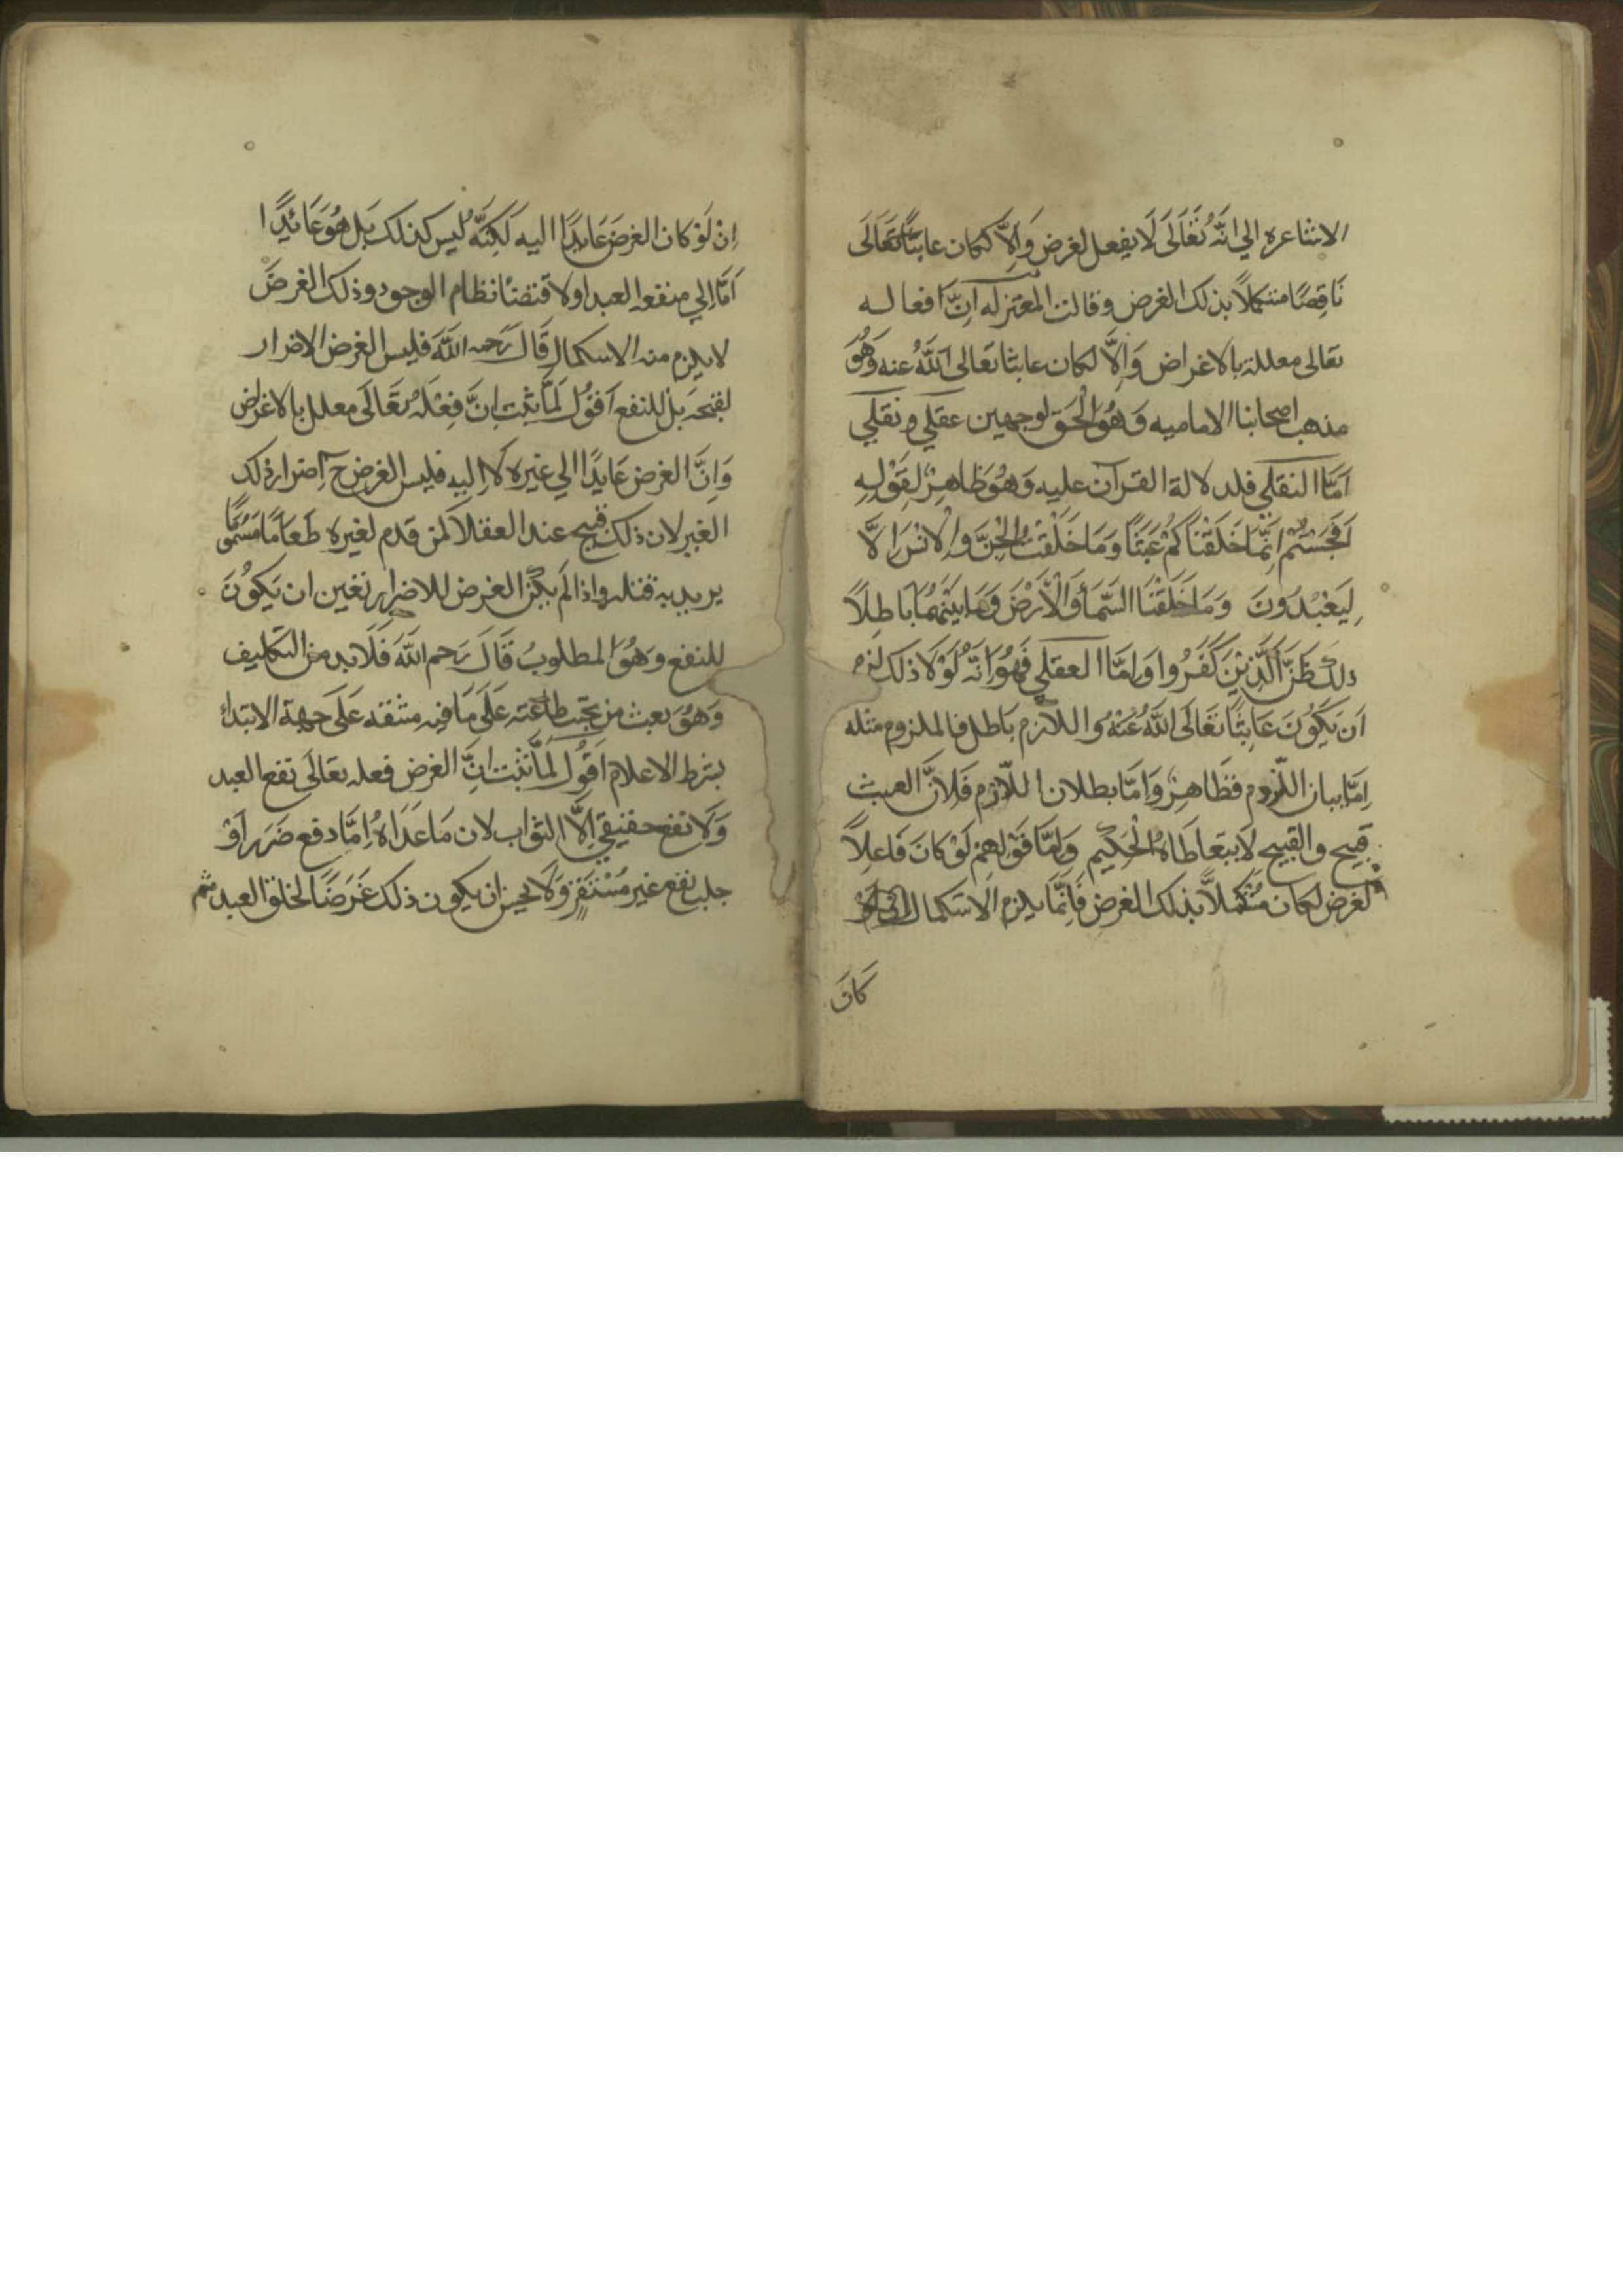 الاشاعره الي انَّهُ تَعَالَى لَا يفعل لغرض وَاِلَّا لكان عابثًا تَعَالَى
نَاقِصًا مستكملاً بذلك الغرض وقالت المعتزله اِنَّ افعاله
تعالى معللة بالاغراض وَاِلَّا لكان عابثا تعالى اللّهُ عنه وَهُوَ
مذهب اصحابنا الاماميه وَهُوَ الْحَقّ لوجهين عقلي ونقلي
اَمَّا النقلي فلدلالة القرآن عليه وَهُوَ ظَاهِرٌ لِقَوْلِهِ
اَفَحَسِبْتُمْ اَنَّمَا خَلَقْنَاكُمْ عَبَثًا وَمَا خَلَقْتُ الْجِنَّ وَالْاِنْسَ اِلَّا
لِيَعْبُدُونَ وَمَا خَلَقْنَا السَّمَأَ وَالْاَرْضَ وَمَا بَيْنَهُمَا بَاطِلًا
ذلِكَ ظَنَّ الَّذِيْنَ كَفَرُوا وَاَمَّا العقلي فَهُوَ اَنَّهُ لَوْلَا ذلك لزم
اَنْ يَكُونَ عَابِثًا تَعَالَى اللّهُ عَنْهُ واللازم بَاطل فالملزوم مثله
اِمَّا بيان اللّزوم فظَاهِرٌ وَاَمَّا بطلان اللّازم فَلِاَنَّ العبث
قبيح والقبيح لَا يتعَاطَاهُ الْحَكِيم وَاَمَّا قَوْلهمْ لَوْ كَانَ فَاعِلاً
لغرض لكان مستكملاً بذلك الغرض فَاِنَّمَا يلزم الاستكمال
كَانَ
اِنْ لَوْ كان الغرضَ عَايدًا اليه لَكِنَّهُ ليس كذلك بَل هُوَ عَائدًا
اَمَّا اِلي منفعه العبد اولاقتضئا نظام الوجود وذلك الغرضَ
لا يلزم منه الاسكمال قَالَ رَحمه اللّهَ فليس الغرض الاضرار
لقبحه بَل للنفع اَقوُل لَمَّا ثبت انَّ فِعْلَهُ تَعَالَى معلل بالاغراض
وَاِنَّ الغرض عَايدًا الي غيره لَا اِليه فليس الغرض ح اِضرار ذلك
الغير لان ذلك قبيح عند العقلاَ لمن قدم لغيره طَعَامًا مَسْمُومًا
يريد به قتله واذا لَم يكن الغرض للاضرار تعين ان يَكُونَ
للنفع وهُوَ المطلوبُ قَالَ رَحم اللّهَ فَلَابد من التكليف
وَهُوَ بعث من تجب طَاعته عَلَى مَا فيه مشقه عَلَى جهة الابتدأ
بشرط الاعلام اَقوُل لَمَّا ثبت اِنَّ الغرض فعله تعَالَى نفع العبد
وَلَا نفع حقيقي اِلَّا الثواب لان مَا عَدَاهُ اِمَّا دفع ضَرر اَوْ
جلب نفع غير مُسْتَقِرٍ وَلَا يحسن ان يكون ذلك غَرَضًا لخلق العبد ثم